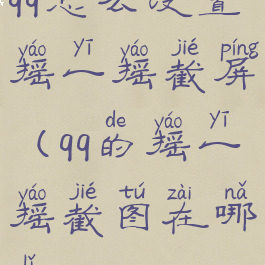 qq怎么设置
yáo yī yáo jié píng
摇一摇截屏
de yáo yī
(qq的摇一
yáo jié tú zài nǎ
摇截图在哪
lǐ